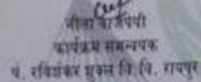 नीता वाजपेयी
कार्यक्रम समन्वयक
पं. रविशंकर शुक्ल वि.वि. रायपुर